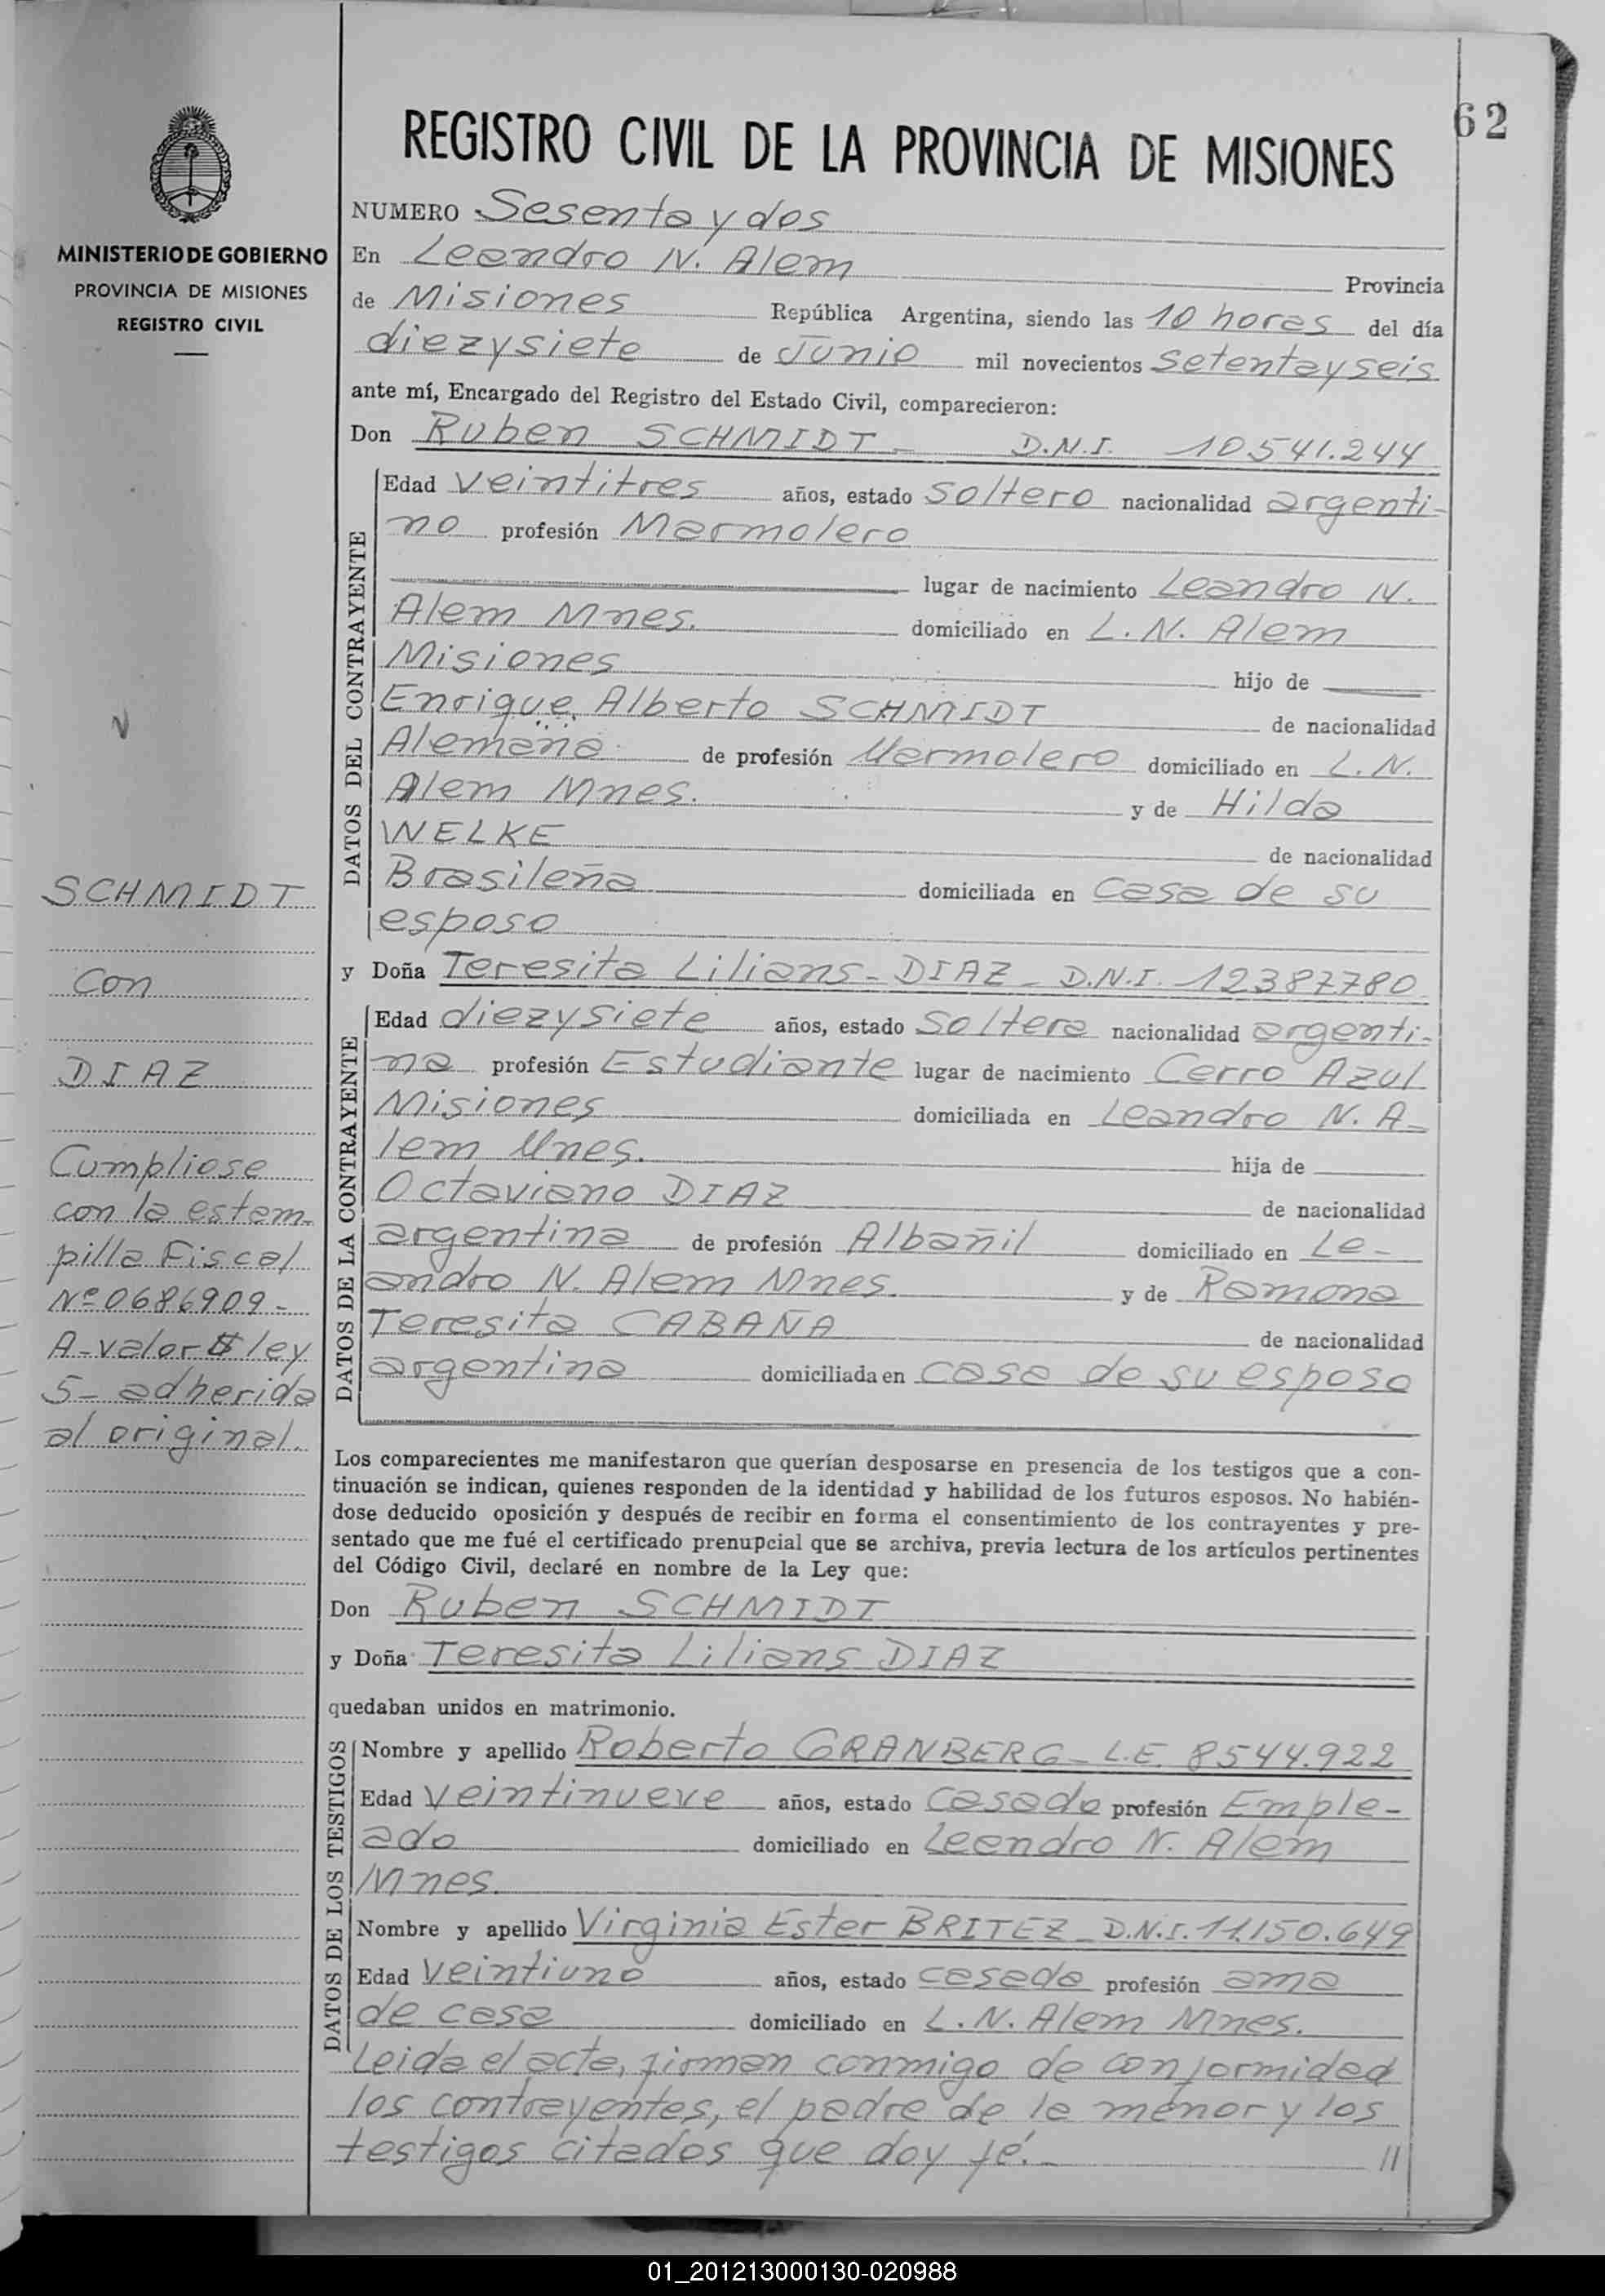 62
REGISTRO CIVIL DE LA PROVINCIA DE MISIONES
MINISTERIO DE GOBIERNO
PROVINCIA DE MISIONES
REGISTRO CIVIL
NUMERO Sesenta y dos
En Leandro N. Alem Provincia
de Misiones República Argentina, siendo las 10 horas del día
diezysiete de Junio mil novecientos setentayseis
ante mí, Encargado del Registro del Estado Civil, comparecieron:
Don Ruben SCHMIDT - D.N.I. 10.541.244
DATOS DEL CONTRAYENTE
Edad veintitres años, estado soltero nacionalidad argenti-
no profesión Marmolero
lugar de nacimiento Leandro N.
Alem Mnes. domiciliado en L. N. Alem
Misiones hijo de
Enrique Alberto SCHMIDT de nacionalidad
Alemana de profesión Marmolero domiciliado en L. N.
Alem Mnes. y de Hilda
WELKE de nacionalidad
Brasileña domiciliada en casa de su
esposo
y Doña Teresita Lilians - DIAZ - D.N.I. 12387780
DATOS DE LA CONTRAYENTE
Edad diezysiete años, estado soltera nacionalidad argenti-
na profesión Estudiante lugar de nacimiento Cerro Azul
Misiones domiciliada en Leandro N. A-
lem Mnes. hija de
Octaviano DIAZ de nacionalidad
argentina de profesión Albañil domiciliado en Le-
andro N. Alem Mnes. y de Ramona
Teresita CABAÑA de nacionalidad
argentina domiciliada en casa de su esposo
SCHMIDT
con
DIAZ
Cumpliose
con la estam-
pilla Fiscal
Nº 0686909-
A-valor $ ley
5- adherida
al original.
Los comparecientes me manifestaron que querían desposarse en presencia de los testigos que a con-
tinuación se indican, quienes responden de la identidad y habilidad de los futuros esposos. No habién-
dose deducido oposición y después de recibir en forma el consentimiento de los contrayentes y pre-
sentado que me fué el certificado prenupcial que se archiva, previa lectura de los artículos pertinentes
del Código Civil, declaré en nombre de la Ley que:
Don Ruben SCHMIDT
y Doña Teresita Lilians DIAZ
quedaban unidos en matrimonio.
DATOS DE LOS TESTIGOS
Nombre y apellido Roberto GRANBERG - L.E. 8544.922
Edad veintinueve años, estado casado profesión Emple-
ado domiciliado en Leandro N. Alem
Mnes.
Nombre y apellido Virginia Ester BRITEZ - D.N.I. 11.150.649
Edad veintiuno años, estado casada profesión ama
de casa domiciliado en L. N. Alem Mnes.
Leida el acta, firman conmigo de conformidad
los contrayentes, el padre de la menor y los
testigos citados que doy fé. - //
01_201213000130-020988